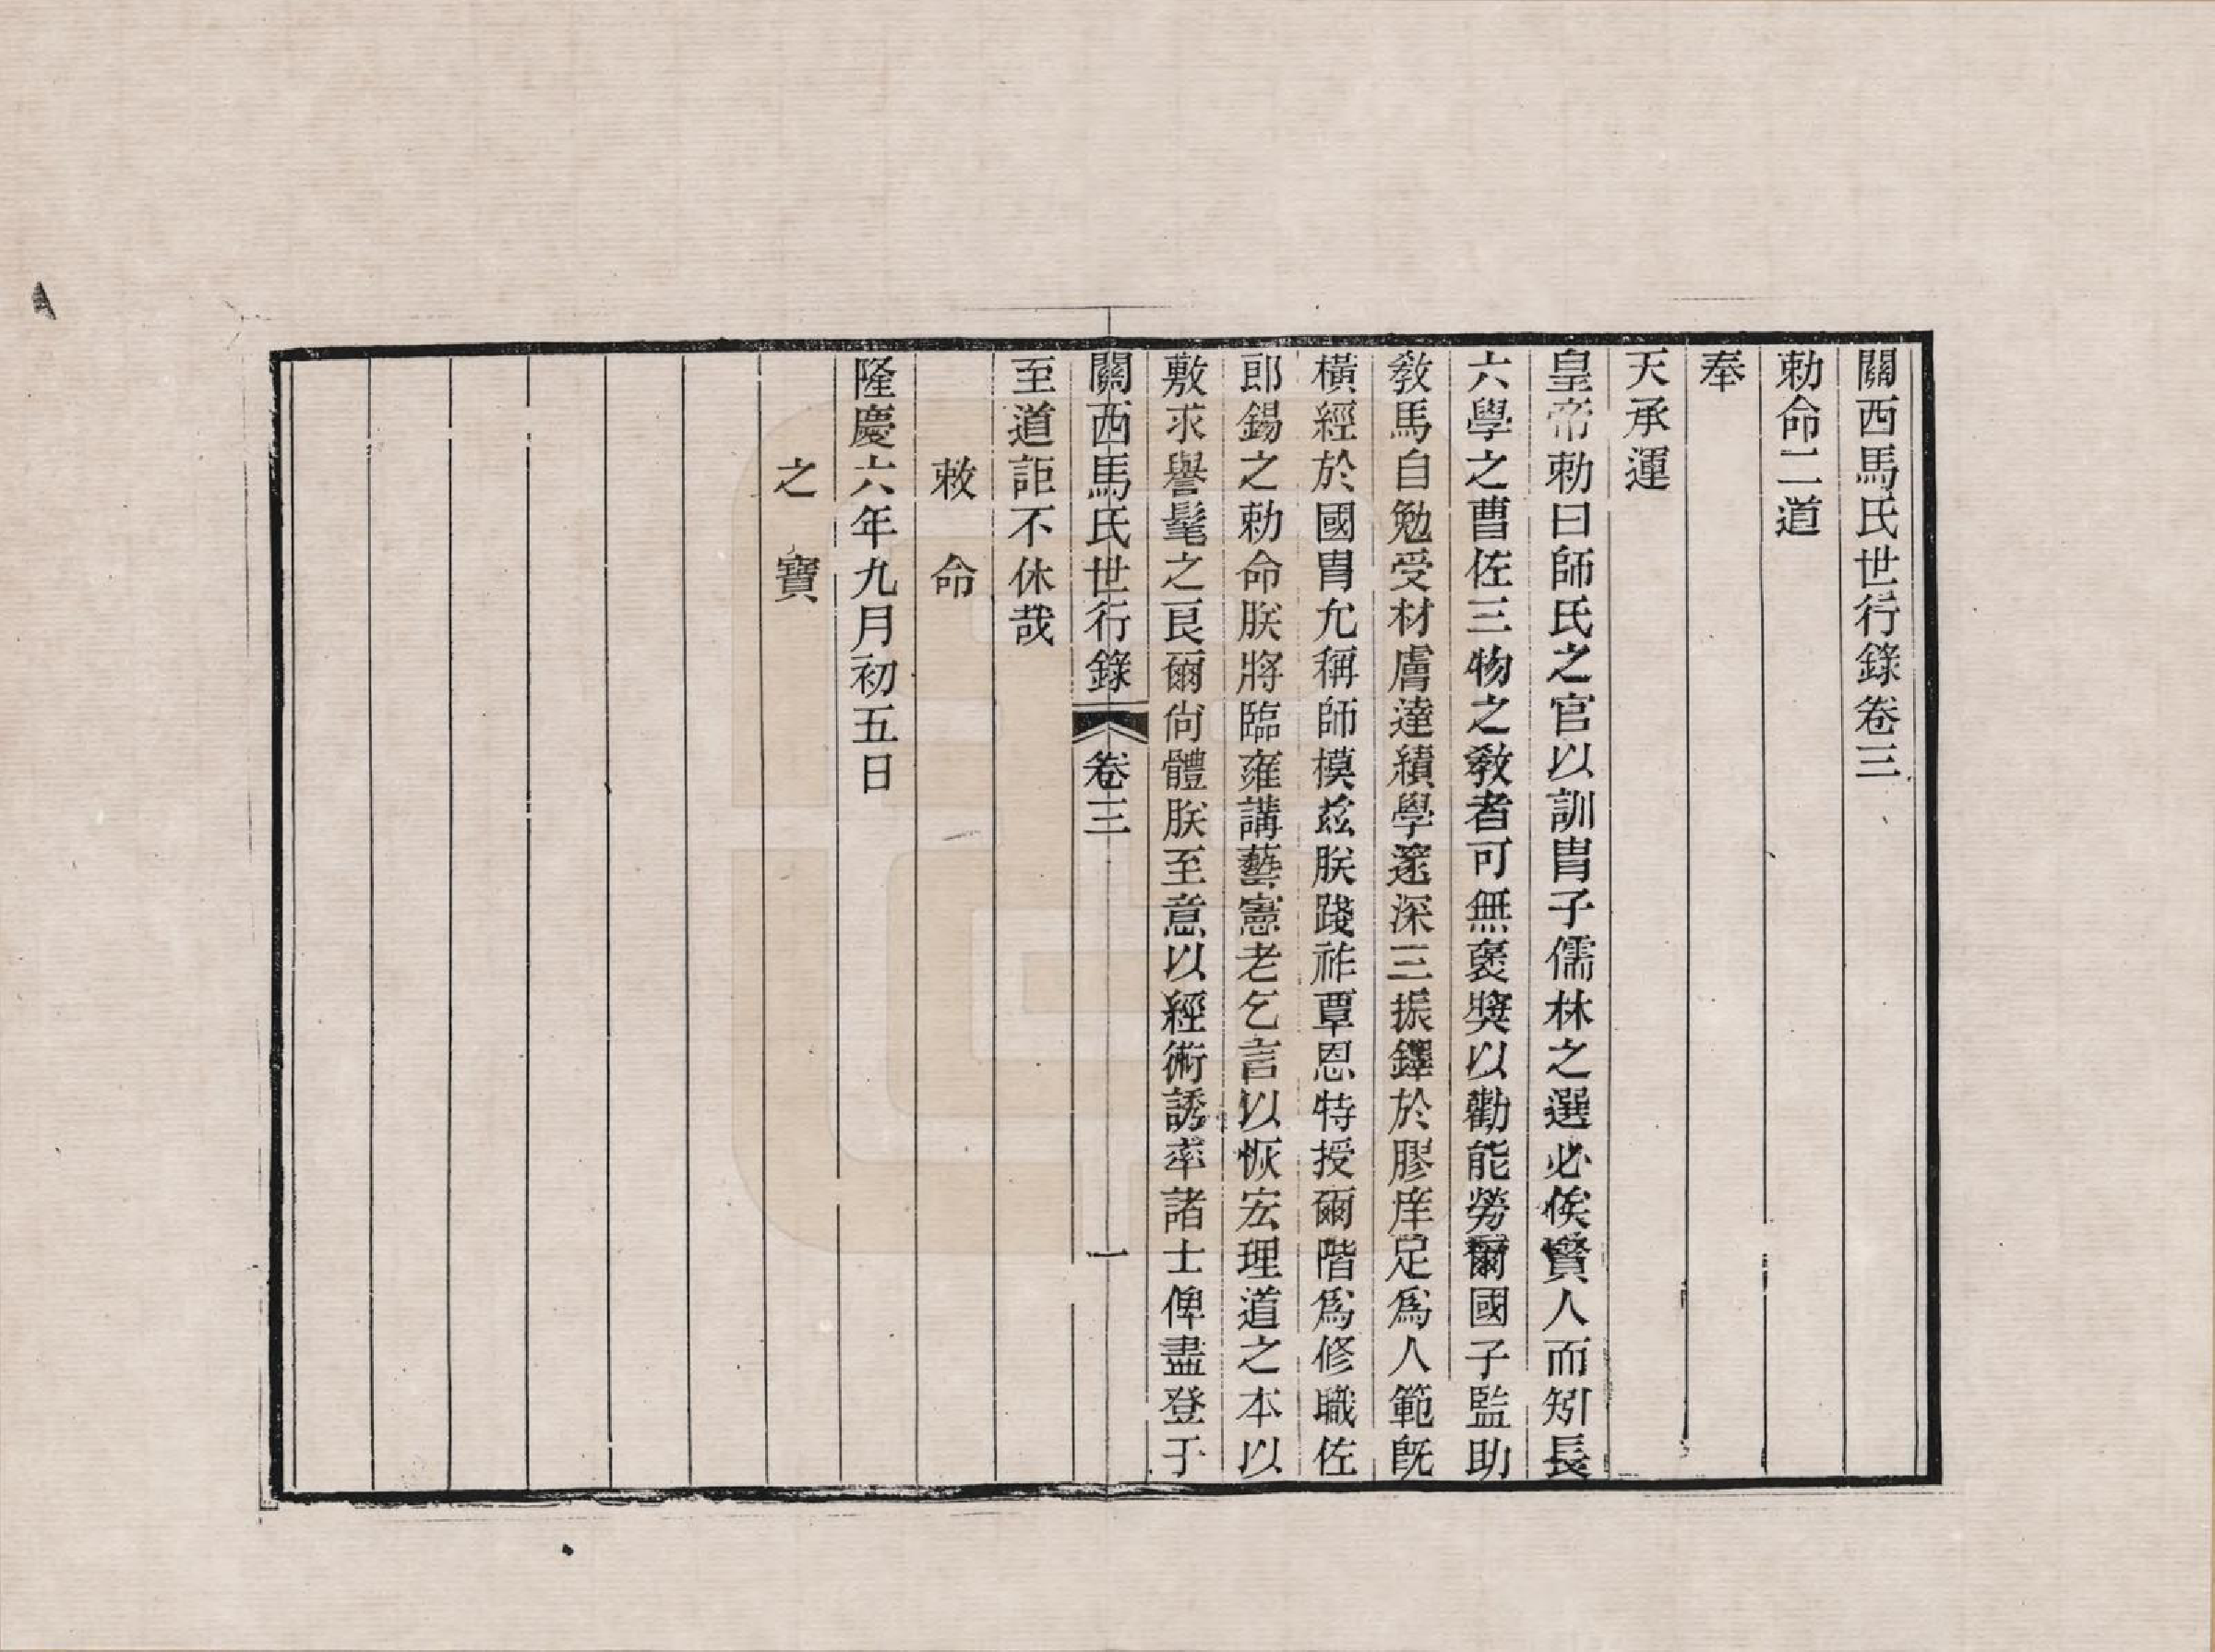 關西馬氏世行錄卷三
勅命二道
奉
天承運
皇帝勅曰師氏之官以訓胄子儒林之選必俟賢人而矧長
六學之曹佐三物之敎者可無褒獎以勸能勞爾國子監助
敎馬自勉受材膚達績學邃深三振鐸於膠庠足爲人範旣
橫經於國胄允稱師模玆朕踐祚覃恩特授爾階爲修職佐
郎錫之勅命朕將臨雍講藝憲老乞言以恢宏理道之本以
敷求譽髦之良爾尙體朕至意以經術誘率諸士俾盡登于
關西馬氏世行錄 卷三 一
至道詎不休哉
敕命
隆慶六年九月初五日
之寶